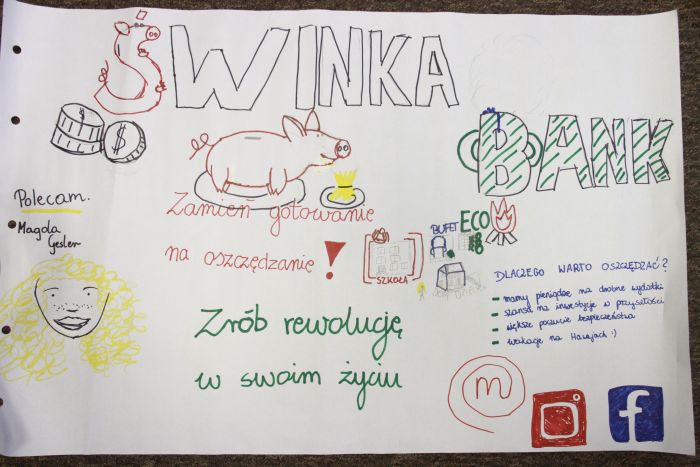 ŚWINKA
BANK
Polecam.
Magda
Gesler
Zamień gotowanie
na oszczędzanie!
SZKOŁA
BUFET
ECO
Zrób rewolucję
w swoim życiu
DLACZEGO WARTO OSZCZĘDZAĆ?
- mamy pieniądze na drobne wydatki
- szansa na inwestycje w przyszłości
- większe poczucie bezpieczeństwa
- wakacje na Hawajach :)
m
f